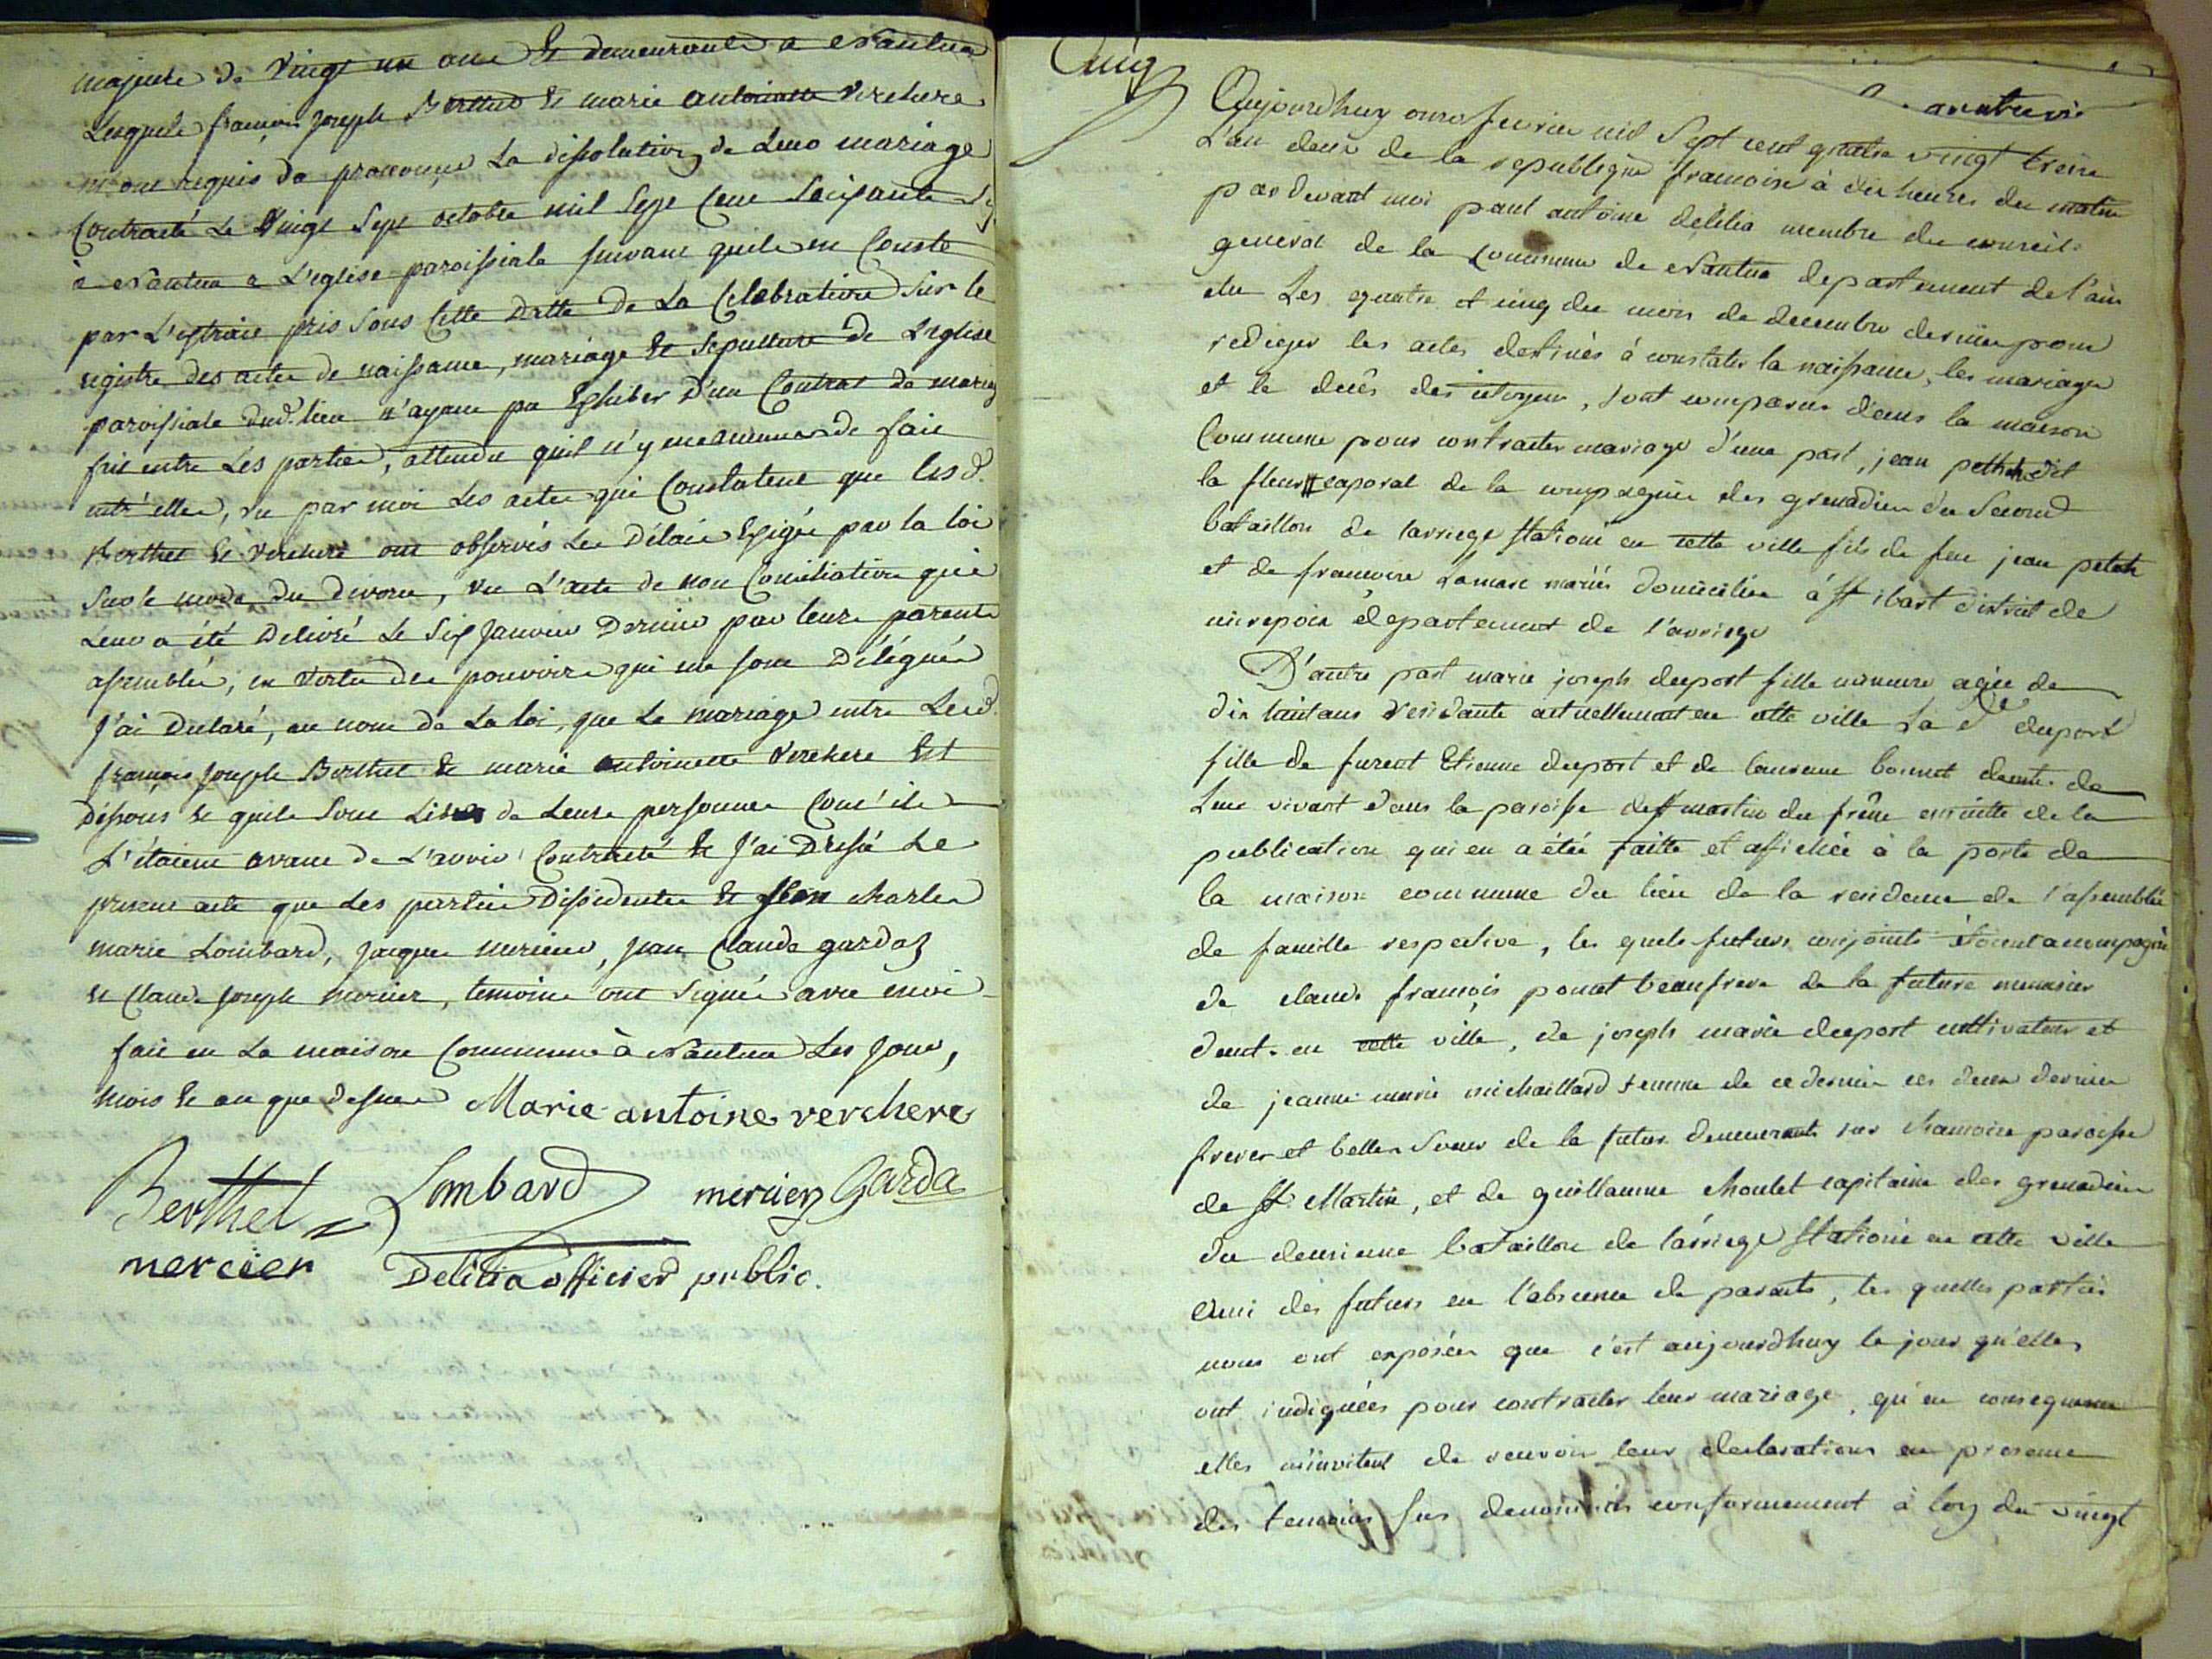 majeure de vingt un ans & demeurante a Nantua
Lesquels françois joseph Berthet & marie antoinette Verchere
m'ont requis de prononcer La dissolution de Leur mariage
Contracté Le vingt Sept octobre mil Sept Cent Soixante
à Nantua a L'eglise paroissiale suivant quil en Conste
par L'extrait pris Sous Cette Datte De La Celebration Sur le
registre des actes de naissance, mariage & Sepulture de L'eglise
paroissiale dud. lieu n'ayant pu Exhiber D'un Contrat de mariage
fait entre Les parties, attendu quil n'y en a aucun de fait
entr'elles, vu par moi Les actes qui Constatent que Lesd.
Berthet & Verchere ont observés Les Délais Exigés par la loi
Sur le mode du divorce, vu L'acte de non Conciliation qui
Leur a été Delivré Le Six Janvier Dernier par leurs parents
assemblés, en vertu des pouvoirs qui me sont Délégués
J'ai Declaré, au nom de La loi, que Le mariage entre Lesd.
françois Joseph Berthet & marie antoinette Verchere Est
Dissous & quils Sont Libres de Leurs personnes Com'ils
L'étaient avant de L'avoir Contracté & J'ai Dressé Le
present acte que Les parties Dissidentes & charles
marie Lombard, Jacques mercier, Jean Claude gardaz
& Claude Joseph mercier, temoins ont Signés avec moi
fait en La maison Commune à Nantua Les Jour,
mois & an que dessus Marie antoine verchere
Berthet Lombard mercier Garda
mercier Delilia officier public.
Cinq
Aujourdhuy onze fevrier mil Sept cent quatre vingt treize
L'an deux de la republique francoise à dix heures du matin
pardevant moi paul antoine delilia membre du conseil
general de la Commune de Nantua departement de l'ain
elu Les quatre et cinq du mois de decembre dernier pour
rediger les actes destinés à constater la naissance, les mariages
et le decés des citoyens, sont comparus dans la maison
Commune pour contracter mariage d'une part, jean dit
la fleur caporal de la compagnie des grenadiers du Second
bataillon de larriege stationé en cette ville fils de feu jean
et de francoise Lamare mariés domiciliés à St ibart district de
mirepoix departement de l'arriege
D'autre part marie joseph deport fille mineure agée de
dix huit ans residante actuellement en cette ville La de deport
fille de furent Etienne deport et de laurence bonnet demts. de
Leur vivant dans la paroisse de St martin du frêne ensuitte de la
publication qui en a étée faitte et affichée à la porte de
la maison commune du lieu de la residence de l'assemblée
de famille respective, les quels futurs conjoints étant accompagnés
de claude françois poncet beaufrere de la future menuisier
demt. en cette ville, de joseph marie deport cultivateur et
de jeanne marie michaillard femme de ce dernier ces deux derniers
freres et belle Soeur de la future demeurants sur chamoise paroisse
de St. Martin, et de guillaume choulet capitaine des grenadiers
du deuxieme bataillon de l'arriege stationé en cette ville
ami des futurs en l'absence de parents, les quelles parties
nous ont exposées que c'est aujourdhuy le jour qu'elles
ont indiquées pour contracter leur mariage, qu'en consequence
elles m'invitent de recevoir leurs declarations en presence
des temoins sus denommés conformement à loy du vingt